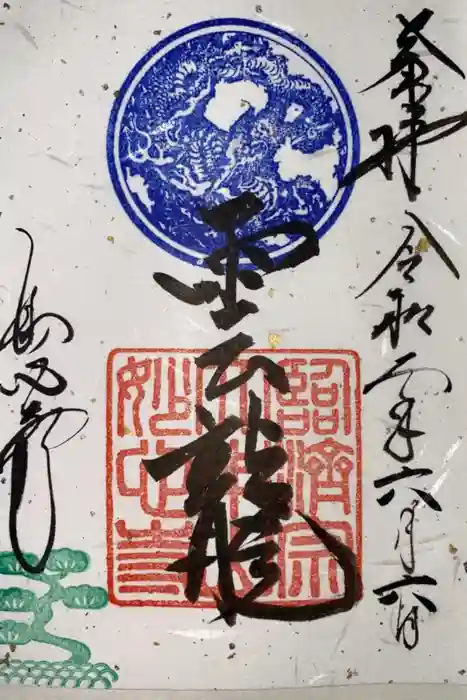 奉拝
令和二年六月六日
雲龍
臨濟宗
妙心寺
妙心寺